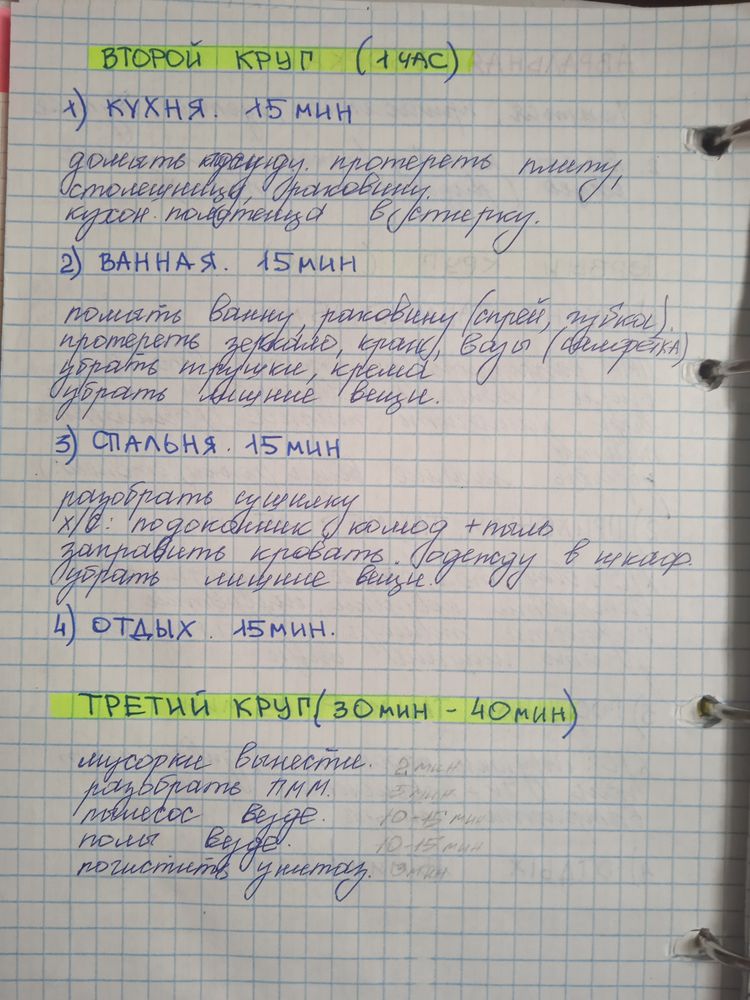 ВТОРОЙ КРУГ (1 ЧАС)
1) КУХНЯ. 15 МИН
домыть посуду. протереть плиту,
столешницу, раковину.
кухон. полотенца в стирку.
2) ВАННАЯ. 15 МИН
помыть ванну, раковину (спрей, губка).
протереть зеркало, кран, вазы (салфетка)
убрать игрушки, крема
убрать лишние вещи.
3) СПАЛЬНЯ. 15 МИН
разобрать сушилку
х/о: подоконник, комод + пыль
заправить кровать. одежду в шкаф.
убрать лишние вещи.
4) ОТДЫХ. 15 МИН.
ТРЕТИЙ КРУГ (30 МИН - 40 МИН)
мусорки вынести. 2 мин
разобрать ПММ. 5 мин
пылесос везде. 10-15 мин
полы везде. 10-15 мин
почистить унитаз. 3 мин